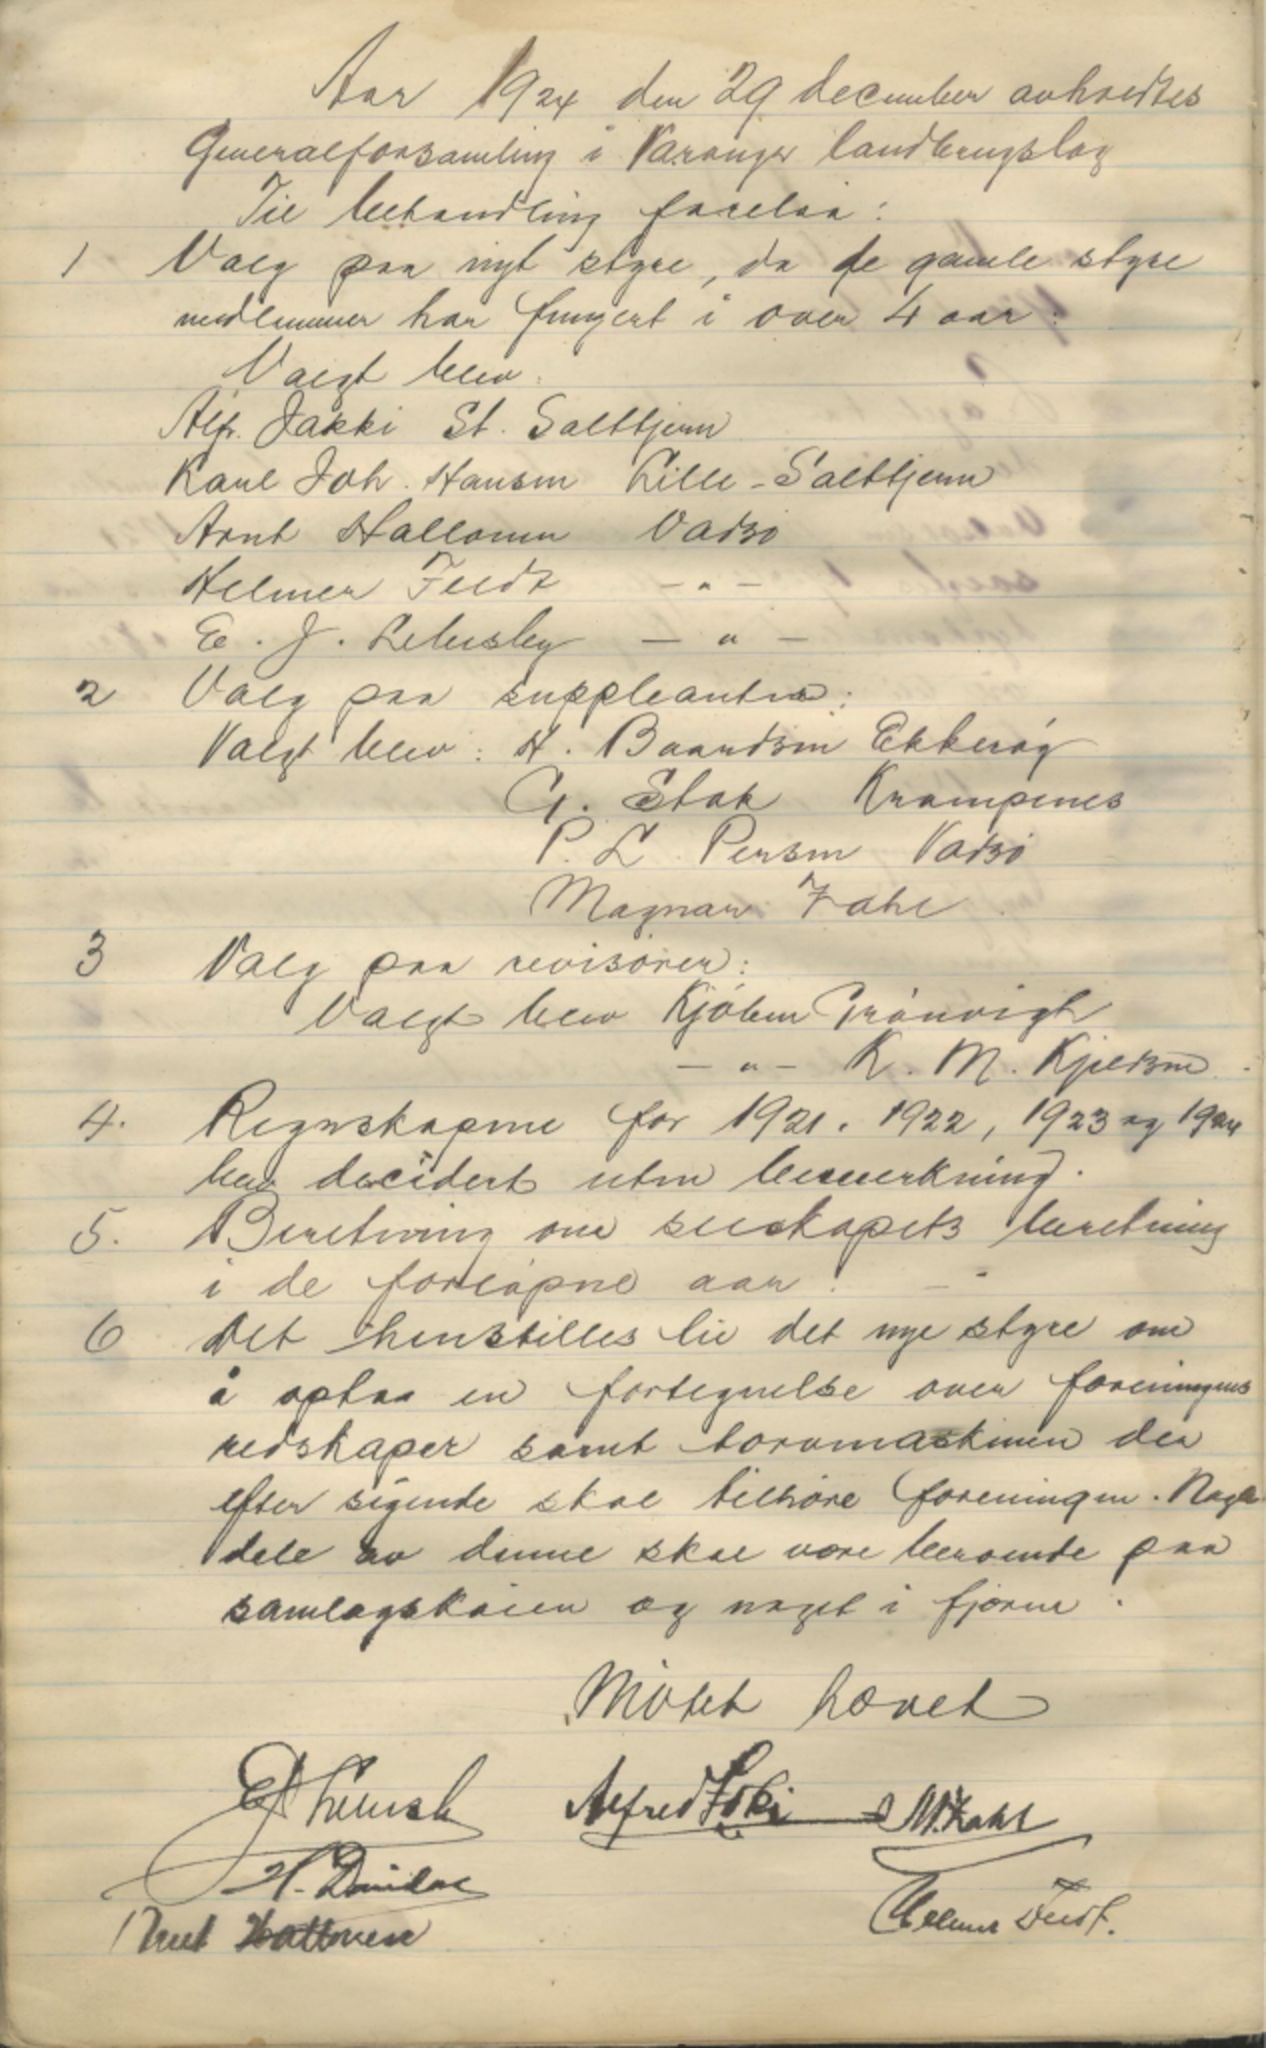 Aar 1924 den 29 december avholdtes
Generalforsamling i Varanger landbrugslag
Til behandling forelaa:
1 Valg paa nyt styre, da de gamle styre
medlemmer har fungert i over 4 aar:
Valgt blev:
Alfr. Jakki St. Salttjern
Karl Joh. Hansen Lille-Salttjern
Arnt Hallonen Vadsø
Helmer Feldt — " —
E. J. — " —
2 Valg paa suppleanter:
Valgt blev: H. Baardsen Ekkerøy
G. Stok Krampenes
P. L. Persen Vadsø
Magnar Zahl
3 Valg paa revisorer:
Valgt blev Kjøbm Grønvigh
— " — K. M. Kjeldsen.
4. Regnskapene for 1921. 1922, 1923 og 1924
blev decidert uten bemerkning.
5. Beretning om selskapets beretning
i de forløpne aar. —"
6 Det henstilles til det nye styre om
å optaa en fortegnelse over foreningens
redskaper samt torvmaskinen der
efter sigende skal tilhøre foreningen. Nogle
dele av denne skal være beroende paa
samlagskaien og noget i fjøsene.
Møtet hævet
Alfred M. Zahl
Arnt Hallonen Helmer Feldt.